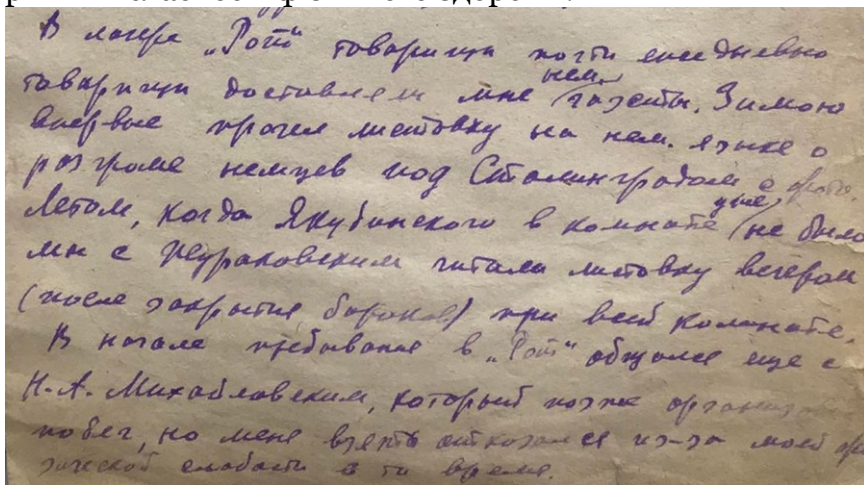 В лагере „Рот" товарищи почти ежедневно
товарищи доставляли мне нем. газеты. Зимою
впервые прочел листовку на нем. языке о
разгроме немцев под Сталинградом с фото.
Летом, когда Якубинского в комнате уже не было
мы с Жураковским читали листовку вечером
(после закрытия бараков) при всей комнате.
В начале пребывания в „Рот" общался еще с
Н.А. Михайловским, который позже организ
побег, но меня взять отказался из-за моей фи
зической слабости в то время.